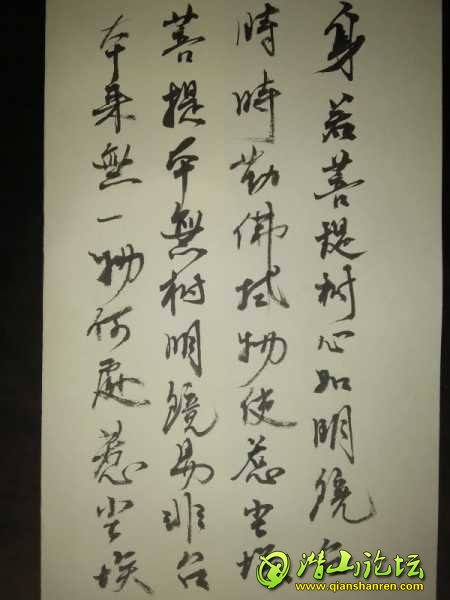 身若菩提树心如明镜台
時時勤佛拭物使惹尘埃
菩提本無树明镜易非台
本来無一物何處惹尘埃
潜山论坛
www.qianshanren.com